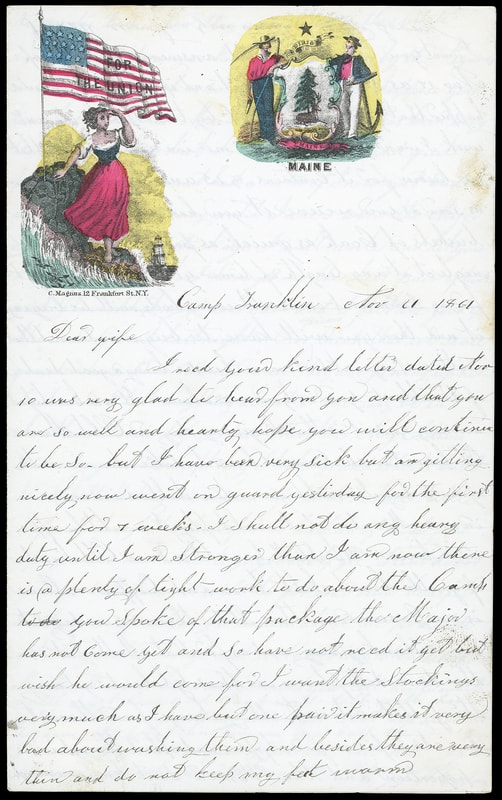 FOR
THE UNION
MAINE
MAINE
C. Magnus 12 Frankfort St. N.Y.
Camp Franklin Nov 11 1861
Dear wife
I recd your kind letter dated Nov
10 was very glad to hear from you and that you
are so well and hearty hope you will continue
to be so- but I have been very sick but am gitting
nicely now went on guard yestirday for the first
time for 7 weeks- I shall not do any heavy
duty until I am stronger than I am now there
is a plenty of light work to do about the Camp
to do you spoke of that package the Major
has not Come yet and so have not recd it yet but
wish he would come for I want the Stockings
very much as I have but one pair it makes it very
bad about washing them and besides they are very
thin and do not keep my feet warm